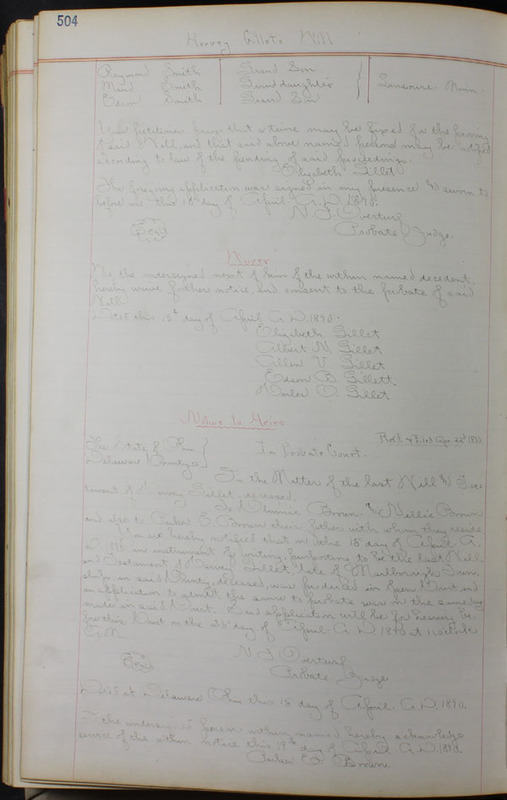 504
Harvey Gillets Will
Raymond Smith Grand Son
Maud Smith Grand daughter
Edson Smith Grand Son
Your petitioner prays that a time may be fixed for the proving
of said Will, and that said above named persons may be notified
according to law of the pending of said proceedings.
Elizabeth Gillet
The foregoing application was signed in my presence and sworn to
before me this 18 day of April A.D. 1890.
N. J. Overturf
Seal Probate Judge.
Waver
We, the undersigned next of Kin of the within named decedent,
hereby waive further notice, and consent to the probate of said
Will.
Dated this 18th day of April A.D. 1890.
Elizabeth Gillet
Albert N. Gillet
Allen V. Gillet
Edson B. Gillett
O. Gillet
Notice to Heirs
Rec'd & Filed Apr. 22d 1890
The State of Ohio
Delaware County ss In Probate Court.
In the Matter of the last Will & Testa
ment of Harvey Gillet, deceased.
To Minnie Brown & Nellie Brown
and also to E. Brown their father with whom they reside
You are hereby notified that on the 18 day of April A.
D. 1890 an instrument of writing purporting to be the last Will
and Testament of Harvey Gillet, late of Marlborough Town
ship in said County, deceased, was produced in Open Court and
an application to admit the same to probate was on the same day
made in said Court. Said application will be for hearing be
fore this Court on the day of April A.D. 1890 at o'clock
N. J. Overturf
Seal Probate Judge
Dated at Delaware Ohio this 18 day of April A.D. 1890.
I the undersigned person within named hereby acknowledge
service of the within notice this 19th day of April A.D. 1890
E. Brown